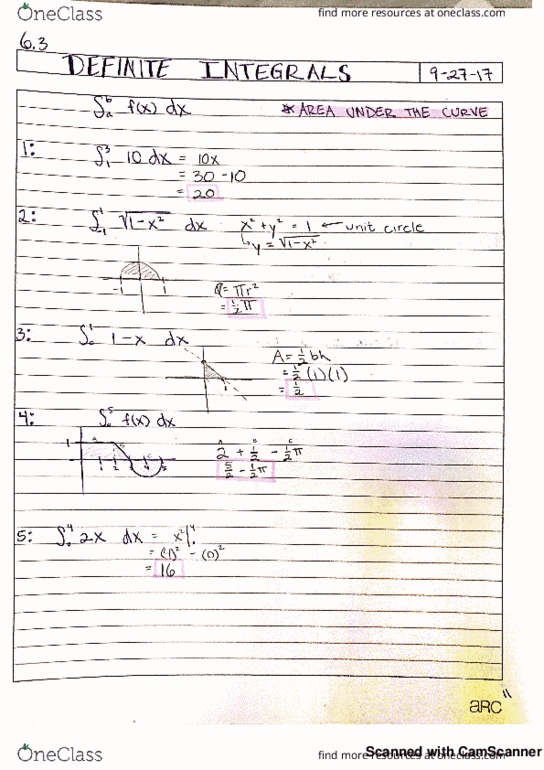 OneClass
find more resources at oneclass.com
6.3
DEFINITE INTEGRALS 9-27-17
∫ₐᵇ f(x) dx * AREA UNDER THE CURVE
1: ∫₁³ 10 dx = 10x
= 30 - 10
= 20
2: ∫₋₁¹ √1-x² dx x² + y² = 1 ← unit circle
↳ y = √1-x²
-1 1
= πr²
= ½π
3: ∫₀¹ 1-x dx
A = ½bh
= ½(1)(1)
1
= ½
4: ∫₀⁵ f(x) dx
1
1 2
2 + ½ - ½π
5/2 - ½π
5: ∫₀⁴ 2x dx = x²|₀⁴
= (4)² - (0)²
= 16
arc
OneClass
find more resources at oneclass.com
Scanned with CamScanner